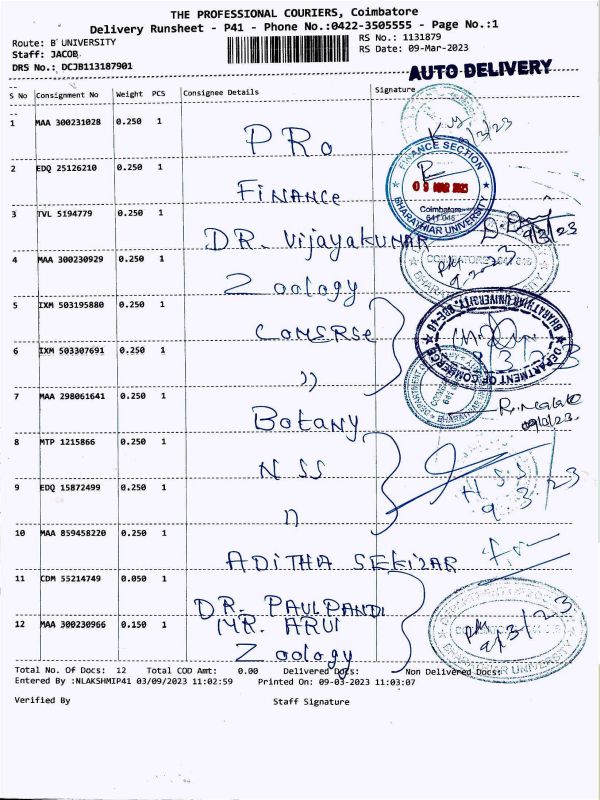 THE PROFESSIONAL COURIERS, Coimbatore
Delivery Runsheet - P41 - Phone No.:0422-3505555 - Page No.:1
Route: B UNIVERSITY
RS No.: 1131879
Staff: JACOB
RS Date: 09-Mar-2023
DRS No.: DCJB113187901
AUTO DELIVERY
S No Consignment No Weight PCS Consignee Details Signature
1 MAA 300231028 0.250 1 PRo
2 EDQ 25126210 0.250 1 FINANCE
FINANCE SECTION
09 MAR 2023
Coimbatore
641 046
BHARATHIAR UNIVERSITY
3 TVL 5194779 0.250 1 DR. Vijayakumar 9/3/23
4 MAA 300230929 0.250 1 Zoology
COIMBATORE 641 046
BHARATHIAR UNIVERSITY
5 IXM 503195880 0.250 1 Comerse
BHARATHIAR UNIVERSITY
DEPARTMENT OF COMMERCE
6 IXM 503307691 0.250 1 ))
7 MAA 298061641 0.250 1 Botany
8 MTP 1215866 0.250 1 NSS
9 EDQ 15872499 0.250 1 n
10 MAA 859458220 0.250 1 ADITHA SEKIZAR
11 CDM 55214749 0.050 1 DR. PAULPANDI
MR. ARUI
12 MAA 300230966 0.150 1 Zoology
BHARATHIAR UNIVERSITY
Total No. Of Docs: 12 Total COD Amt: 0.00 Delivered Docs: Non Delivered Docs:
Entered By :NLAKSHMIP41 03/09/2023 11:02:59 Printed On: 09-03-2023 11:03:07
Verified By Staff Signature